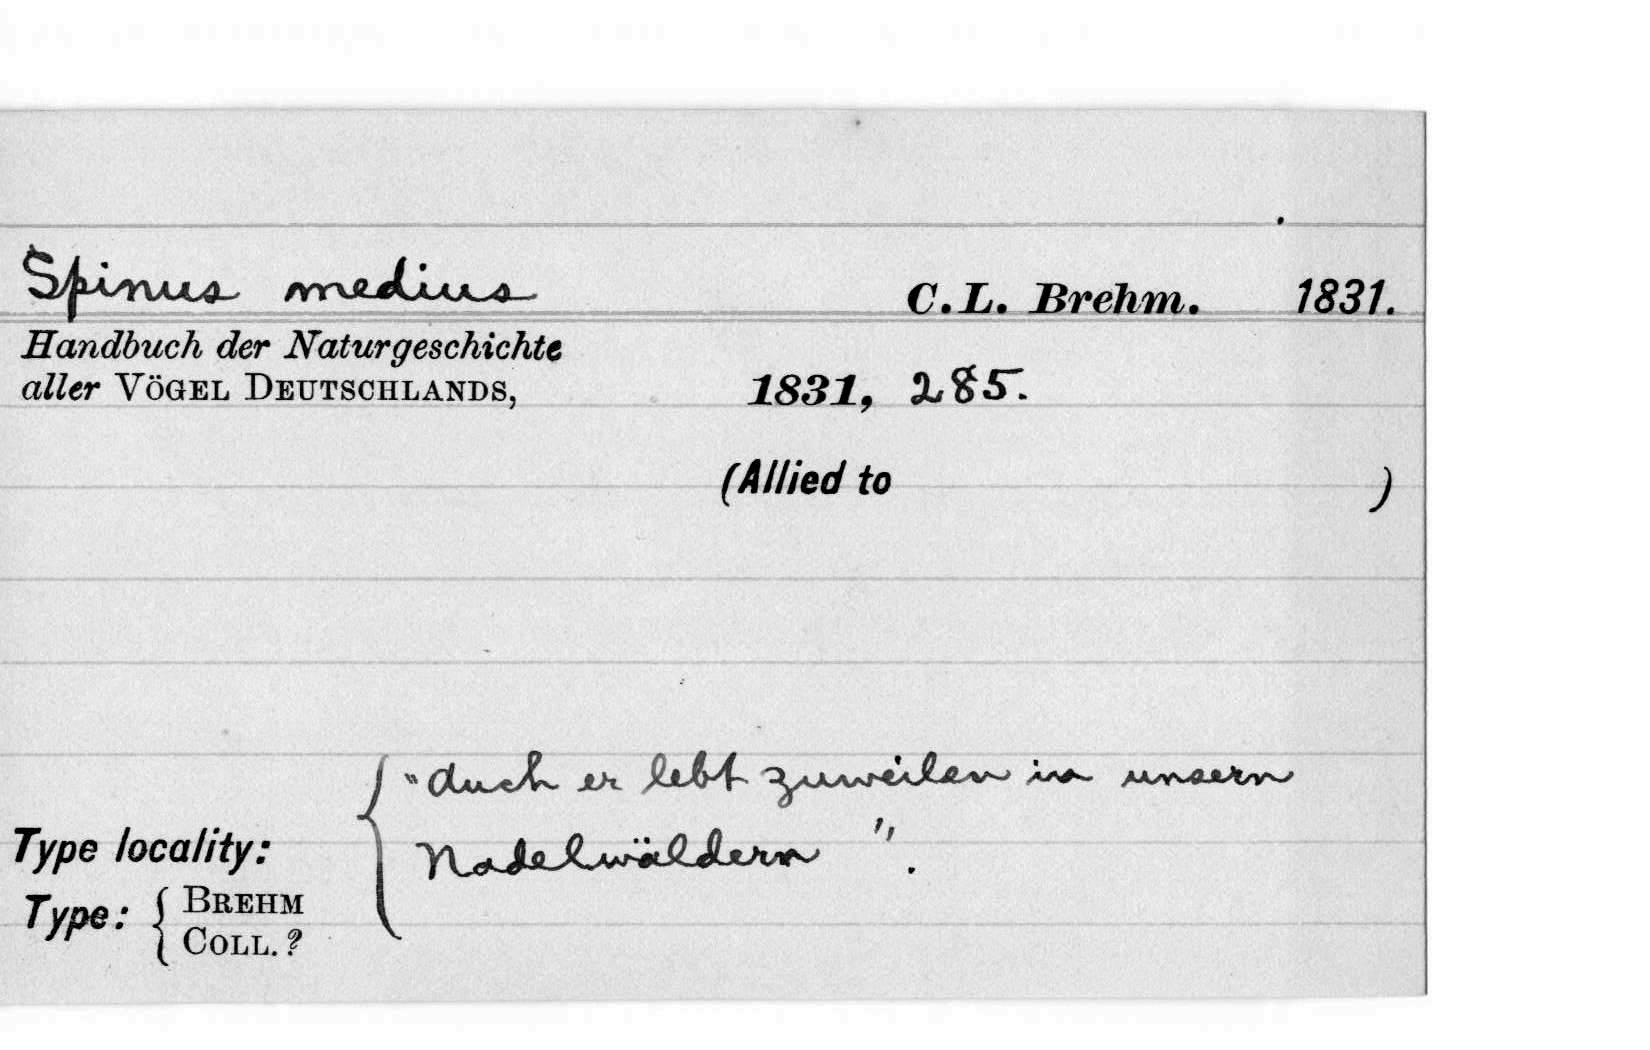 Spinus medius C. L. Brehm. 1831.
Handbuch der Naturgeschichte
aller VÖGEL DEUTSCHLANDS, 1831, 285.
(Allied to )
"Auch er lebt zuweilen in unsern
Type locality: Nadelwäldern".
Type: { BREHM
COLL. ?